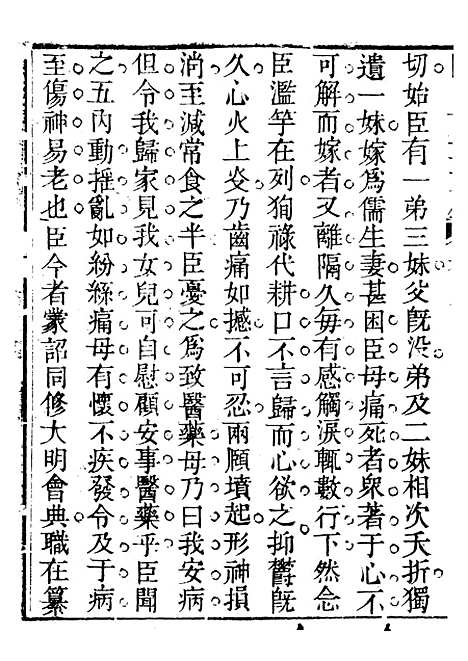 切始臣有一弟三妹父旣没弟及二妹相次夭折獨
遺一妹嫁爲儒生妻甚困臣母痛死者衆著于心不
可解而嫁者又離隔久毎有感觸淚輒數行下然念
臣濫竽在列狥祿代耕口不言歸而心欲之抑鬱旣
久心火上炎乃齒痛如撼不可忍兩頤墳起形神損
淌至減常食之半臣憂之爲致醫藥母乃曰我安病
但令我歸家見我女兒可自慰顧安事醫藥乎臣聞
之五內動揺亂如紛絲痛母有懷不疾發令及于病
至傷神易老也臣今者蒙詔同修大明會典職在纂